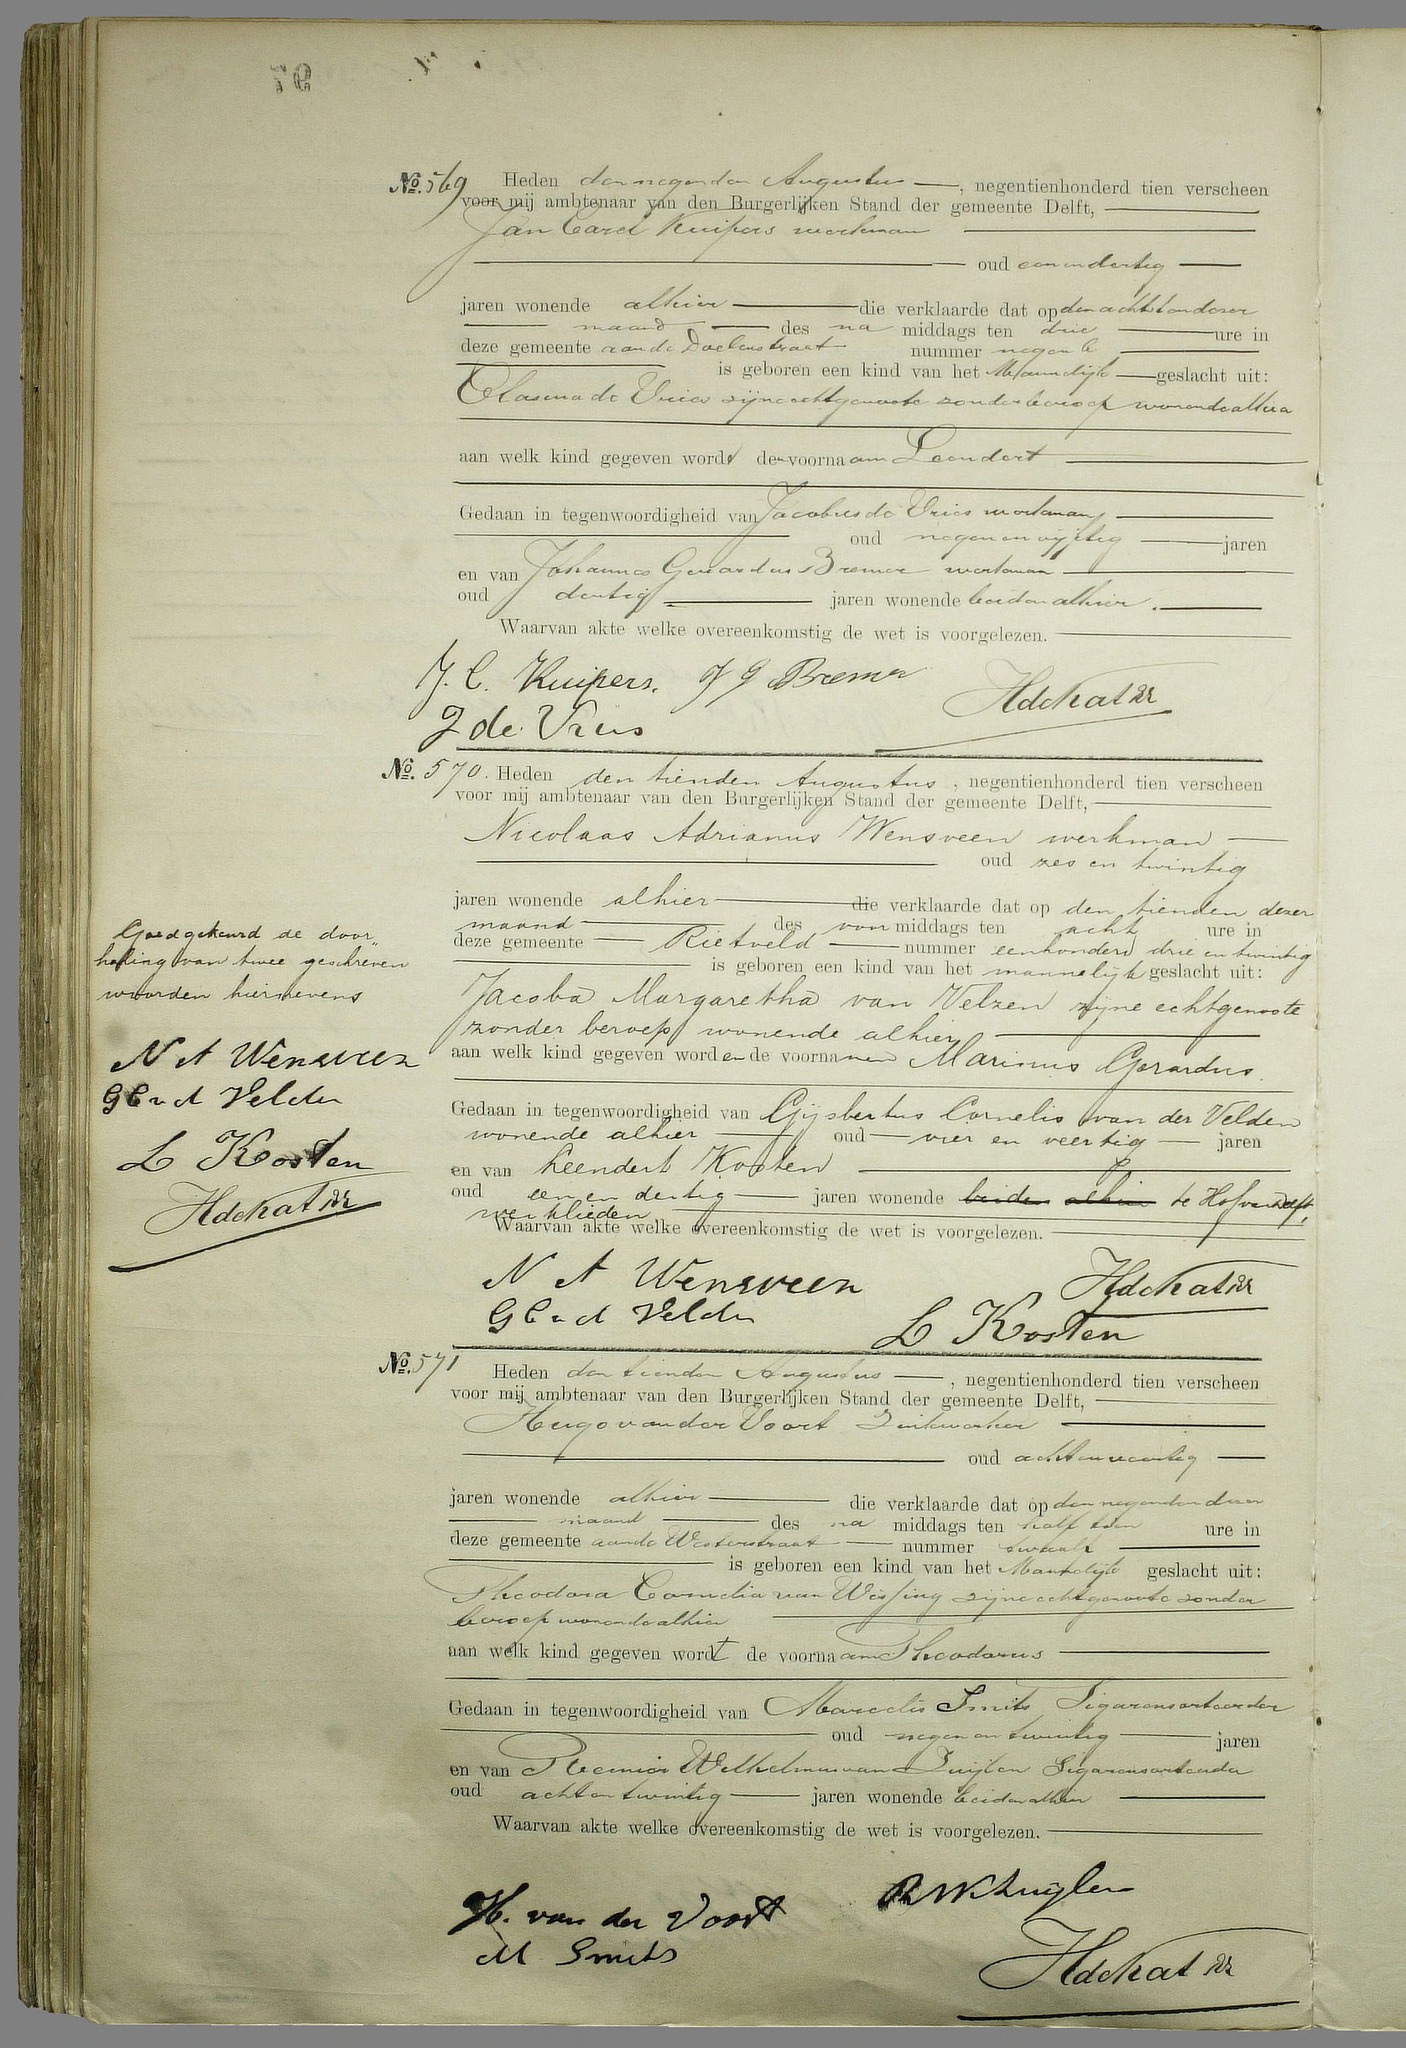 97
No. 569 Heden den negenden Augustus, negentienhonderd tien verscheen
voor mij ambtenaar van den Burgerlijken Stand der gemeente Delft,
Jan Carel Kuipers werkman
oud een en dertig
jaren wonende alhier die verklaarde dat op den achtsten dezer
maand des na middags ten drie ure in
deze gemeente aan de Doelenstraat nummer negen b
is geboren een kind van het Mannelijk geslacht uit:
Clasina de Vries zijne echtgenoote zonder beroep wonende alhier
aan welk kind gegeven wordt den voornaam Leendert
Gedaan in tegenwoordigheid van Jacobus de Vries werkman
oud negen en vijftig jaren
en van Johannes Gerardus Bremer werkman
oud dertig jaren wonende beiden alhier.
Waarvan akte welke overeenkomstig de wet is voorgelezen.
J. C. Kuipers. J G Bremer
J de Vries
No. 570. Heden den tienden Augustus, negentienhonderd tien verscheen
voor mij ambtenaar van den Burgerlijken Stand der gemeente Delft,
Nicolaas Adrianus Wensveen werkman
oud zes en twintig
jaren wonende alhier die verklaarde dat op den tienden dezer
maand des voor middags ten acht ure in
deze gemeente Rietveld nummer eenhonderd drie en twintig
is geboren een kind van het mannelijk geslacht uit:
Jacoba Margaretha van Velzen zijne echtgenoote
zonder beroep wonende alhier
aan welk kind gegeven worden de voornamen Marinus Gerardus.
Gedaan in tegenwoordigheid van Gijsbertus Cornelis van der Velden
wonende alhier oud vier en veertig jaren
en van Leendert Kosten
oud een en dertig jaren wonende beiden alhier te Hof van Delft,
werklieden
Waarvan akte welke overeenkomstig de wet is voorgelezen.
N A Wensveen
G C v d Velden
L Kosten
Goedgekeurd de door„
haling van twee geschreven
woorden hiernevens
N A Wensveen
G C v d Velden
L Kosten
No. 571 Heden den tienden Augustus, negentienhonderd tien verscheen
voor mij ambtenaar van den Burgerlijken Stand der gemeente Delft,
Hugo van der Voort Zinkwerker
oud acht en veertig
jaren wonende alhier die verklaarde dat op den negenden dezer
maand des na middags ten half tien ure in
deze gemeente aan de Westerstraat nummer twaalf
is geboren een kind van het Mannelijk geslacht uit:
Theodora Cornelia van Wissing zijne echtgenoote zonder
beroep wonende alhier
aan welk kind gegeven wordt de voornaam Theodorus
Gedaan in tegenwoordigheid van Marcelis Smits Sigarensorteerder
oud negen en twintig jaren
en van Reinier Wilhelmus van Zuijlen Sigarensorteerder
oud acht en twintig jaren wonende beiden alhier
Waarvan akte welke overeenkomstig de wet is voorgelezen.
H. van der Voort
M Smits